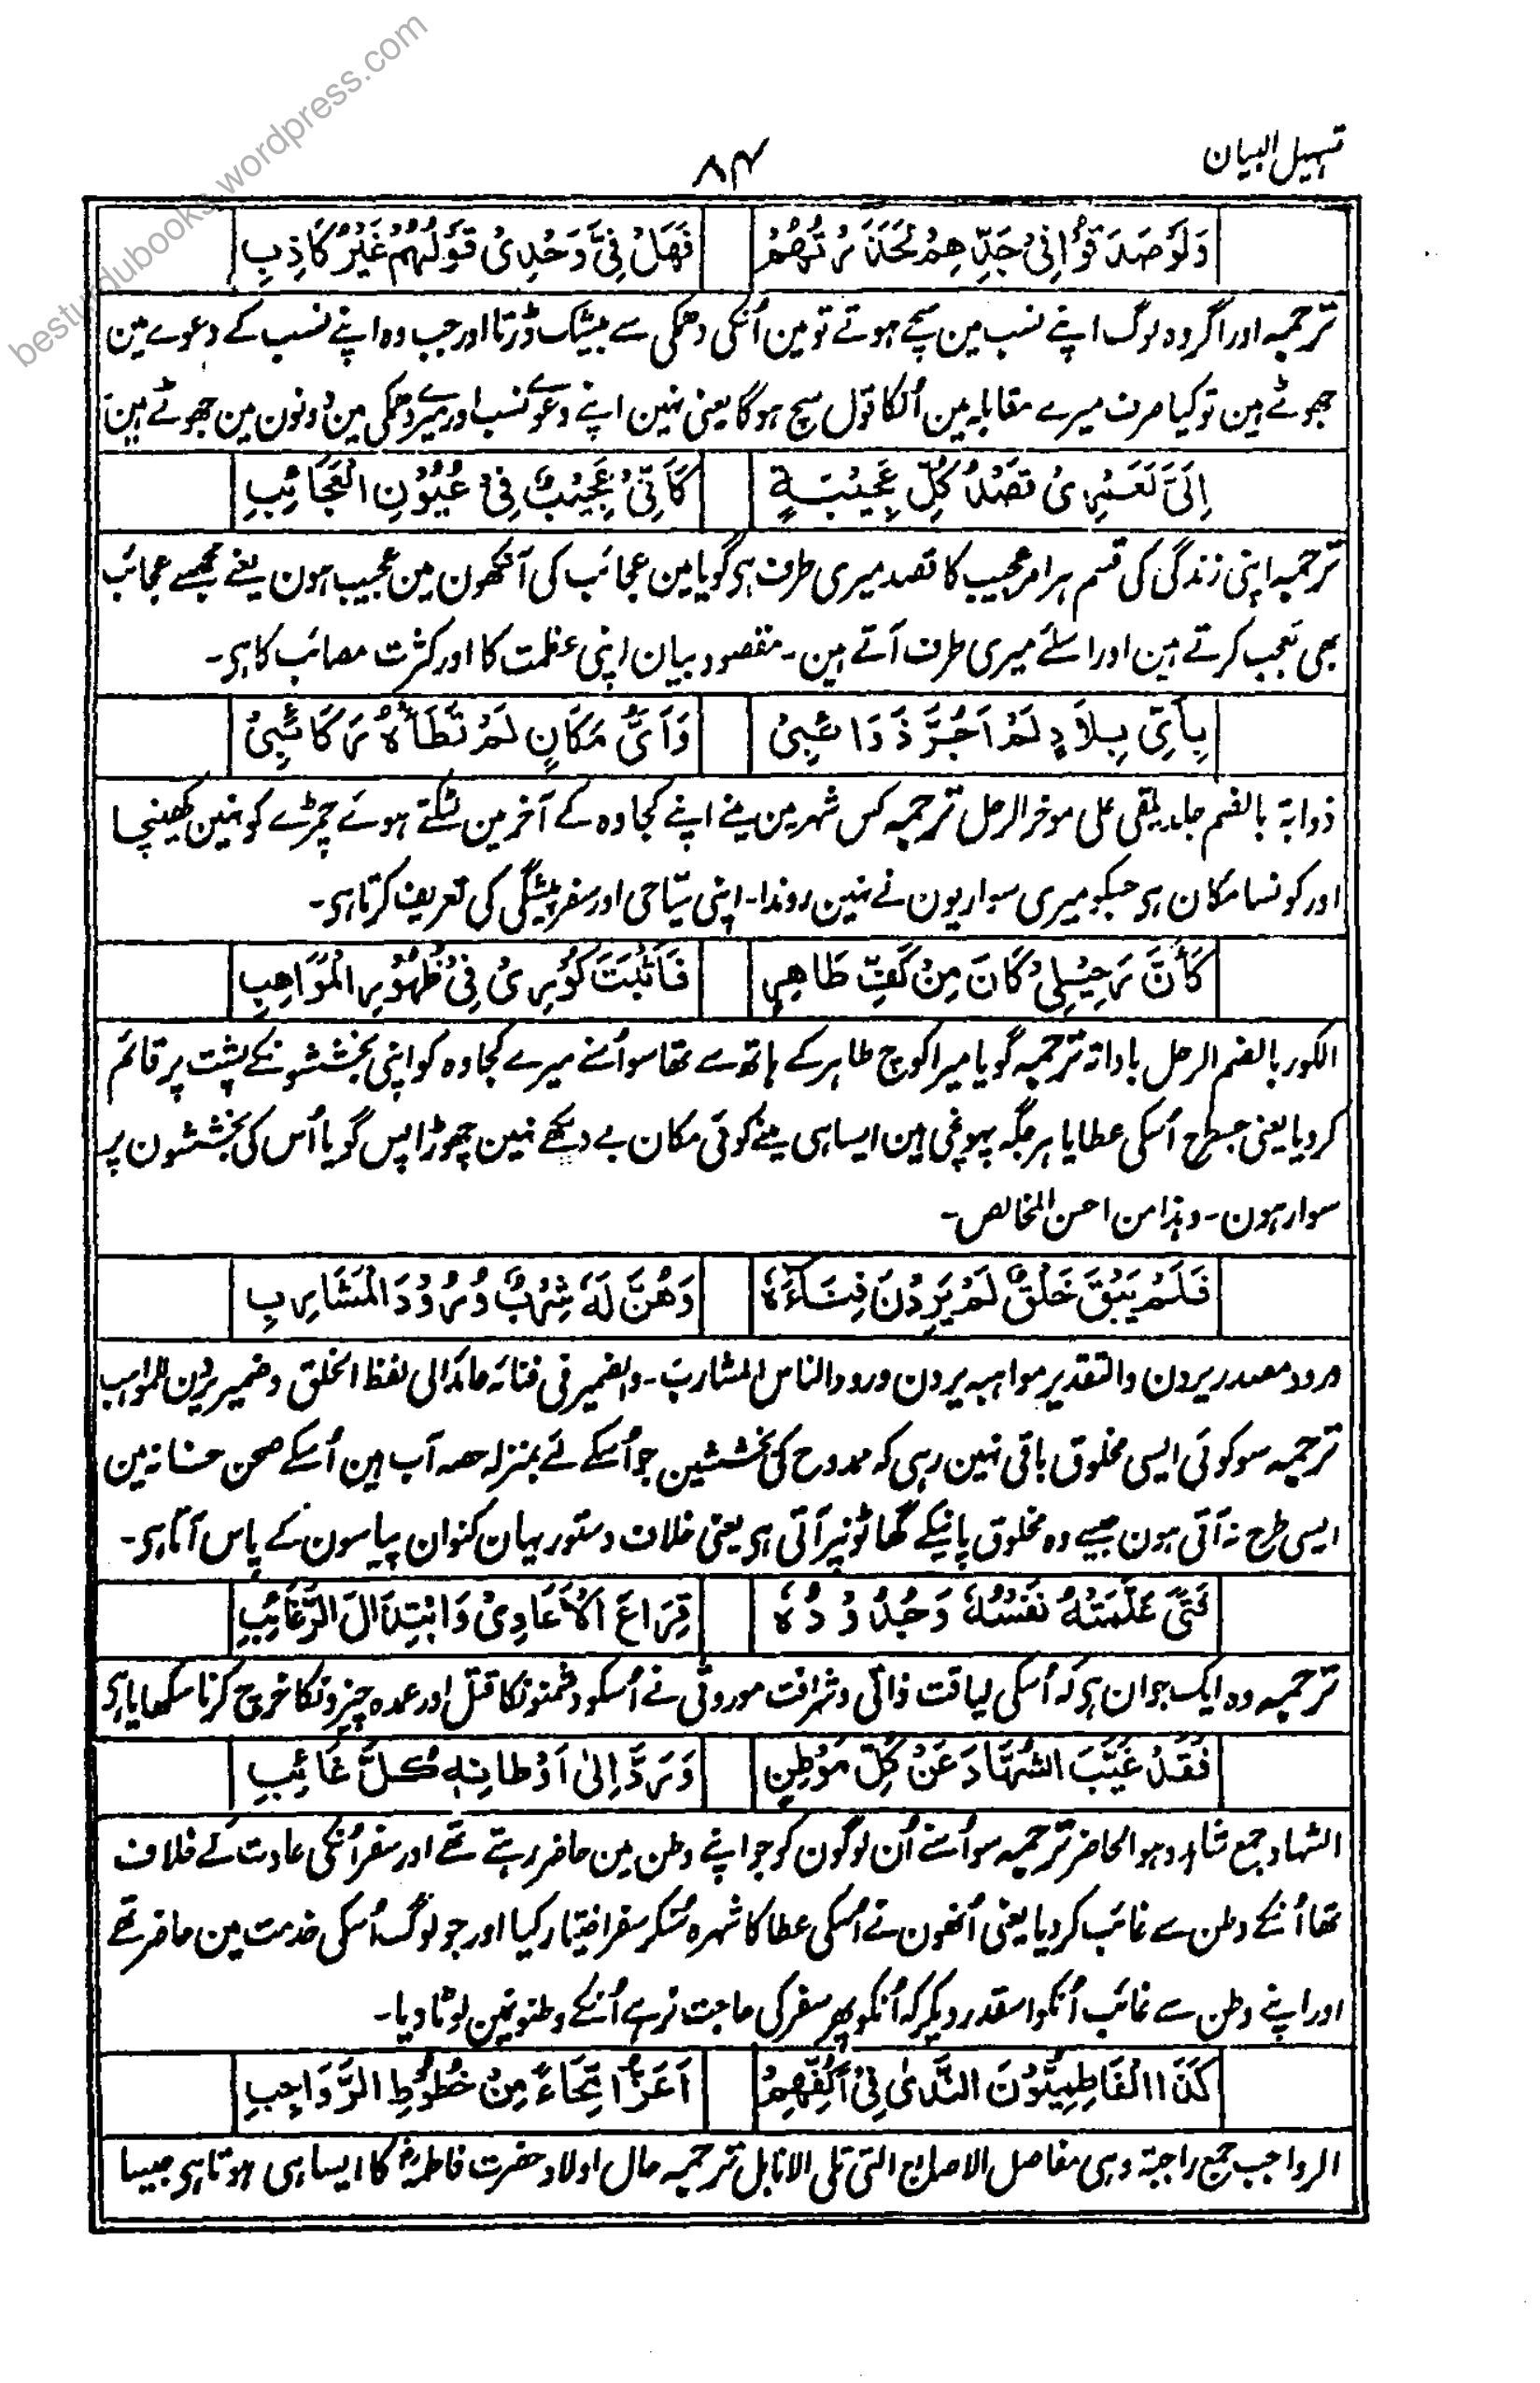 تسہیل البیان
۸۴
وَلَوْ صَدَقُوْا فِیْ جَدِّهِمْ لَحَذَرْتُهُمْ فَهَلْ فِیَّ وَحْدِیْ قَوْلُهُمْ غَیْرُ كَاذِبِ
ترجمہ اور اگر وہ لوگ اپنے نسب مین سچے ہوتے تو مین اُنکی دھمکی سے بیشک ڈرتا اور جب وہ اپنے نسب کے دعوے مین
جھوٹے ہین تو کیا صرف میرے مقابلہ مین اُنکا قول سچ ہوگا یعنی نہین اپنے دعوے نسب اور میرے دھمکی مین دونون مین جھوٹے ہین
اِلَیَّ لَعَمْرِیْ قَصْدُ كُلِّ عَجِیْبَةٍ كَاَنِّیْ عَجِیْبٌ فِیْ عُیُوْنِ الْعَجَائِبِ
ترجمہ اپنی زندگی کی قسم ہر امر عجیب کا قصد میری طرف ہی گویا مین عجائب کی آنکھون مین عجیب ہون یعنے مجھسے عجائب
بھی تعجب کرتے ہین اور اسلئے میری طرف آتے ہین۔ مقصود بیان اپنی عظمت کا اور کثرت مصائب کا ہی۔
بِاَیِّ بِلَادٍ لَمْ اَجُرَّ ذَوَائِبِیْ وَاَیُّ مَكَانٍ لَمْ تَطَأْهُ رَكَائِبِیْ
ذوابۃ بالضم جلد یلقی علی موخر الرحل ترجمہ کس شہر مین مینے اپنے کجاوہ کے آخر مین لٹکتے ہوئے چمڑے کو نہین کھینچا
اور کونسا مکان ہی جسکو میری سواریون نے نہین روندا۔ اپنی سیّاحی اور سفر پیشگی کی تعریف کرتا ہی۔
كَأَنَّ رَحِیْلِیْ كَانَ مِنْ كَفِّ طَاهِرٍ فَاَثْبَتَ كُوْرِیْ فِیْ ظُهُوْرِ الْمَوَاهِبِ
الکور بالضم الرحل باداتہ ترجمہ گویا میرا کوچ طاہر کے ہاتھ سے تھا سو اُسنے میرے کجاوہ کو اپنی بخششونکے پشت پر قائم
کر دیا یعنی جسطرح اُسکی عطایا ہر جگہ پہونچی ہین ایسا ہی مینے کوئی مکان بے دیکھے نہین چھوڑا پس گویا اُس کی بخششون پر
سوار ہون۔ وہذا من احسن المخالص۔
فَلَمْ یَبْقَ خَلْقٌ لَمْ یَرِدْنَ فِنَاءَهٗ وَهُنَّ لَهٗ شِرْبٌ وُرُوْدَ الْمَشَارِبِ
ورود مصدر یردن والتقدیر مواہبہ یردن ورود الناس المشارب۔ والضمیر فی فنائہ عائد الی لفظ الخلق وضمیر یردن للمواہب
ترجمہ سو کوئی ایسی مخلوق باقی نہین رہی کہ ممدوح کی بخششین جو اُسکے لئے بمنزلہ حصہ آب ہین اُسکے صحن خانہ مین
ایسی طرح نہ آئی ہون جیسے وہ مخلوق پانیکے گھاٹونپر آتی ہی یعنی خلاف دستور یہان کنوان پیاسون کے پاس آتا ہی۔
فَتًی عَلَّمَتْهُ نَفْسُهٗ وَجُدُوْدُهٗ قِرَاعَ الْاَعَادِیْ وَابْتِذَالَ الرَّغَائِبِ
ترجمہ وہ ایک جوان ہی کہ اُسکی لیاقت ذاتی و شرافت موروثی نے اُسکو دشمنونکا قتل اور عمدہ چیزونکا خرچ کرنا سکھایا ہی
فَقَدْ غَیَّبَ الشُّهَّادَ عَنْ كُلِّ مَوْطِنٍ وَرَدَّ اِلٰی اَوْطَانِهٖ كُلَّ غَائِبِ
الشہاد جمع شاہد وہو الحاضر ترجمہ سو اُسنے اُن لوگون کو جو اپنے وطن مین حاضر رہتے تھے اور سفر اُنکی عادت کے خلاف
تھا اُنکے وطن سے غائب کر دیا یعنی اُنھون نے اُسکی عطا کا شہرہ سُنکر سفر اختیار کیا اور جو لوگ اُسکی خدمت مین حاضر تھے
اور اپنے وطن سے غائب اُنکو اسقدر دیکر کہ اُنکو پھر سفر کی حاجت نرہے اُنکے وطنونمین لوٹا دیا۔
كَذَا الْفَاطِمِیُّوْنَ النَّدٰی فِیْ اَكُفِّهِمْ اَعَزُّ امِّحَاءً مِنْ خُطُوْطِ الرَّوَاجِبِ
الرواجب جمع راجبۃ وہی مفاصل الاصابع التی تلی الانامل ترجمہ حال اولاد حضرت فاطمہؓ کا ایسا ہی ہوتا ہی جیسا
besturdubooks.wordpress.com